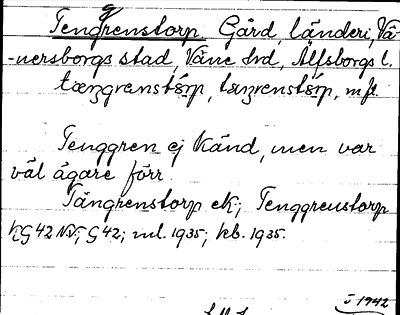 Tenggrenstorp Gård, länderi, Vä-
-nersborgs stad, Väne hrd, Älfsborgs l.
Tenggren ej känd, men var
väl ägare förr.
Tängrenstorp ek; Tenggrenstorp
KG 42 NV; G 42; ml. 1935; kb. 1935.
1942